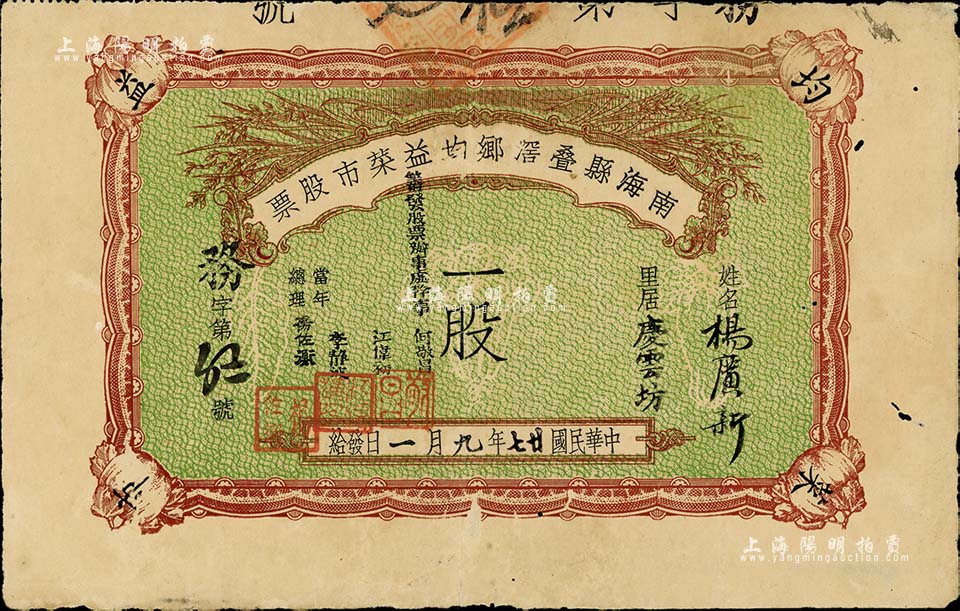 務字第 號
均益菜市
南海縣疊滘鄉均益菜市股票
姓名楊廣新
里居慶雲坊
一股
籌發股票辦事處幹事何敬昌
江偉
李靜
當年總理楊佐衡
務字第 號
中華民國廿七年九月一日發給
上海陽明拍賣
www.yangmingauction.com
上海陽明拍賣
上海陽明拍賣
www.yangmingauction.com